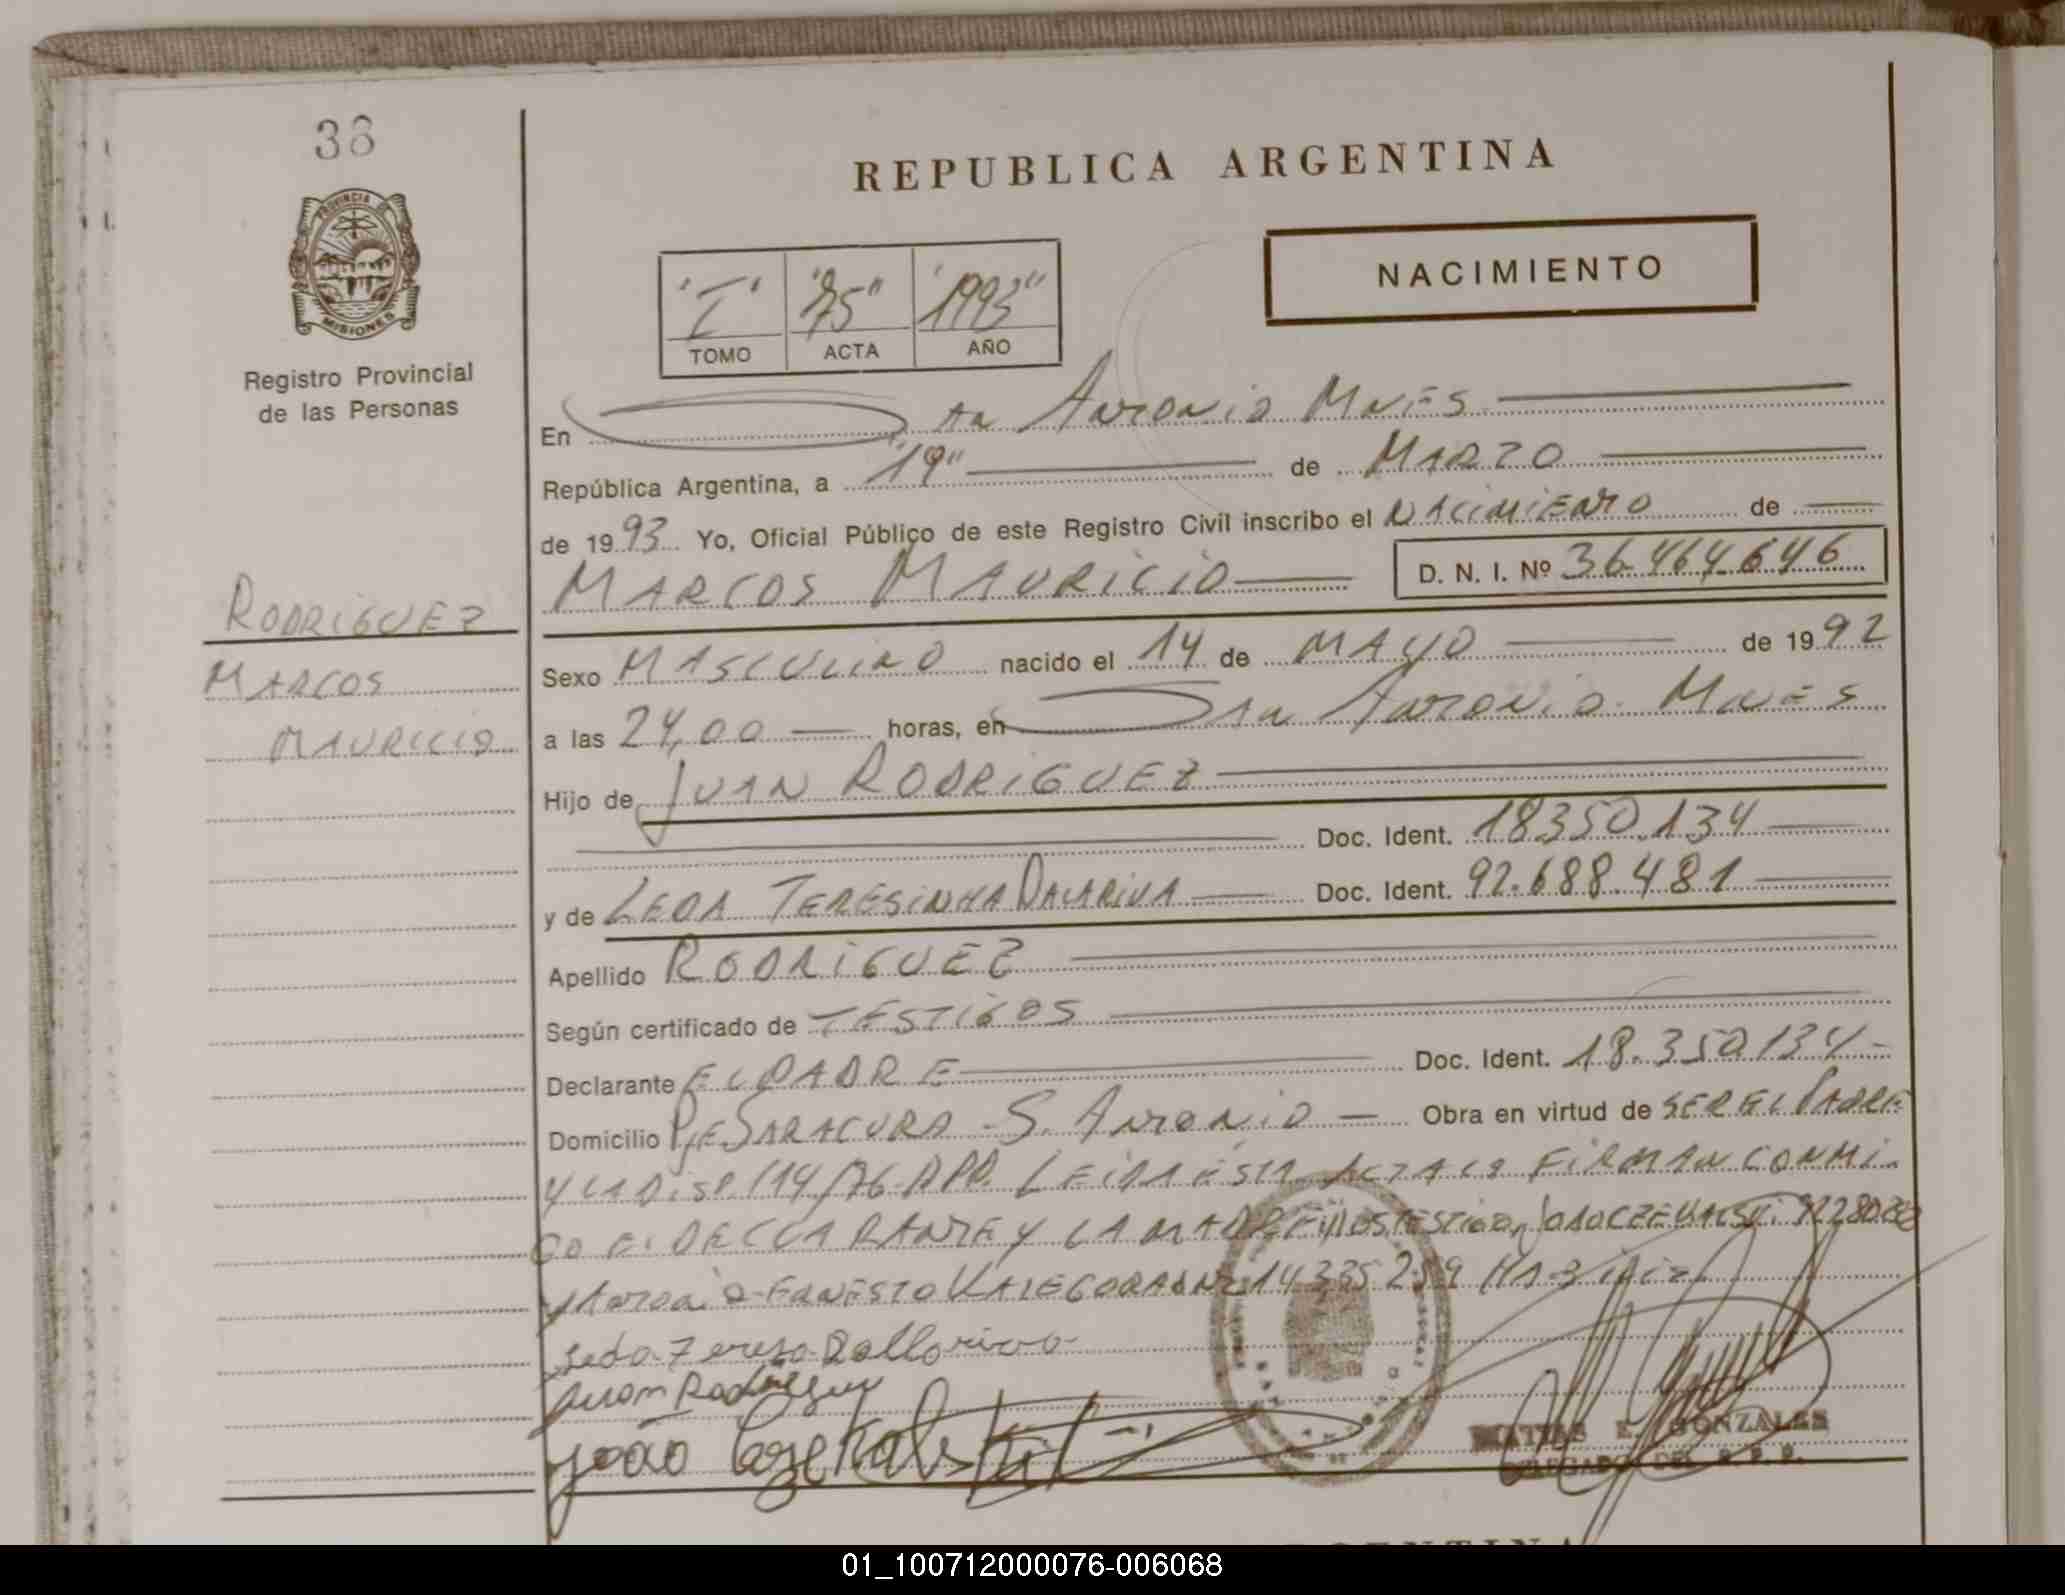 38
PROVINCIA DE
MISIONES
Registro Provincial
de las Personas
RODRIGUEZ
MARCOS
MAURICIO
REPUBLICA ARGENTINA
"I" "75" "1993"
TOMO ACTA AÑO
NACIMIENTO
En ANTONIO MNES
República Argentina, a "19" de MARZO
de 1993 Yo, Oficial Público de este Registro Civil inscribo el NACIMIENTO de
MARCOS MAURICIO D. N. I. Nº 36.464.646
Sexo MASCULINO nacido el 14 de MAYO de 1992
a las 24,00 horas, en ANTONIO MNES
Hijo de JUAN RODRIGUEZ
Doc. Ident. 18350.134
y de LEDA TERESINHA DALARIVA Doc. Ident. 92.688.481
Apellido RODRIGUEZ
Según certificado de TESTIGOS
Declarante EL PADRE Doc. Ident. 18.350134
Domicilio PJE SARACURA - S. ANTONIO Obra en virtud de SER EL PADRE
Y LA DISP. 114/76 RPP. LEIDA ESTA ACTA LA FIRMAN CONMI
GO EL DECLARANTE Y LA MADRE Y LOS TESTIGOS
ERNESTO 14335259
Leda Teresa Dallariva
Juan Rodriguez
João
MATIAS E. GONZALES
DELEGADO DEL R. P. P.
01_100712000076-006068